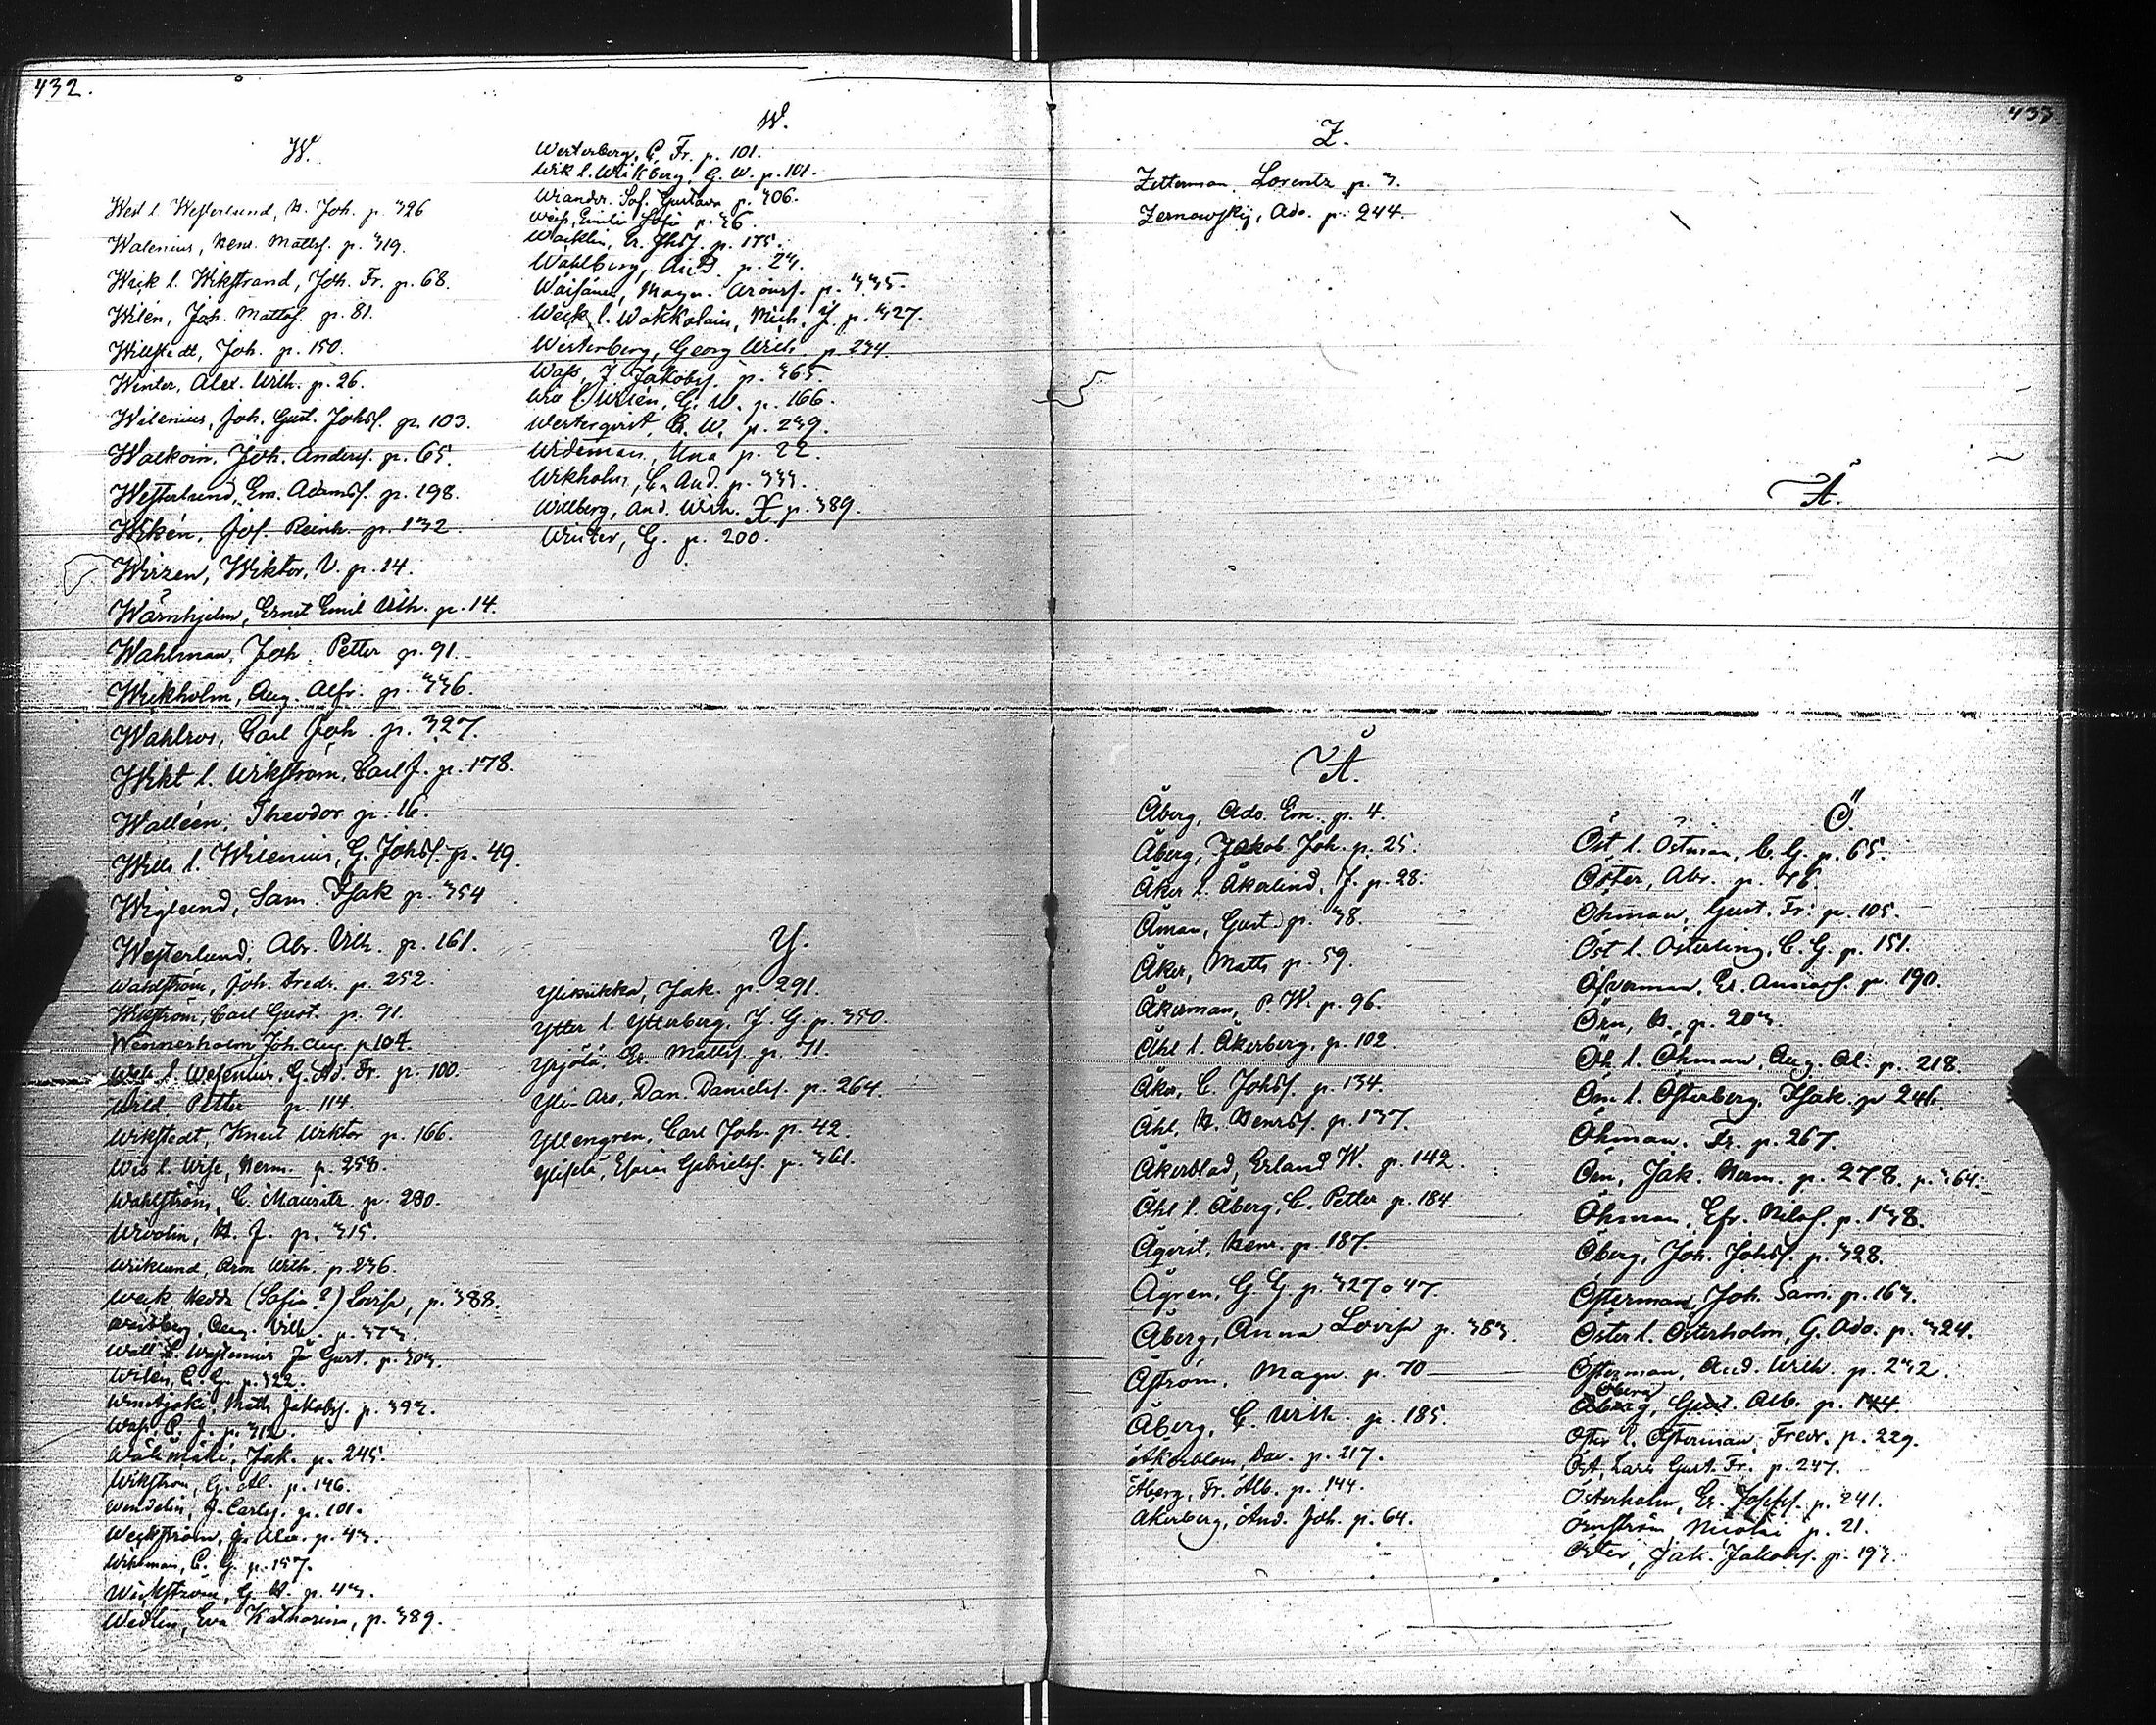 432.
W.
West l. Westerlund, H. Joh. p. 326
Walenius, Henr. Mattsf. p. 319.
Weik l. Wikstrand, Joh. Fr. p. 68.
Wilén, Joh. Mattsf. p. 81.
Willstedt, Joh. p. 150.
Winter, Alex. Wilh. p. 26.
Wilenius, Joh. Gust. Johsf. p. 103.
Walkoin, Joh. Andersf. p. 65.
Westerlund, Em. Adamsf. p. 198.
Wikén, Jos. Reinh. p. 132.
Wirzen, Wiktor, V. p. 14.
Wärnhjelm, Ernst Emil Vilh. p. 14.
Wahlman, Joh. Petter p. 91.
Wickholm, Aug. Alfr. p. 336.
Wahlros, Carl Joh. p. 327.
Wikt l. Wikström, Carl J. p. 178.
Walléen, Theodor p. 16.
Wills l. Wilenius, G. Johsf. p. 49.
Wiglund, Sam. Isak p. 354
Westerlund, Abr. Vilh. p. 161.
Wahlström, Joh. Fredr. p. 252.
Wikström, Carl Gust. p. 91.
Wennerholm Joh. Aug. p 104.
l. Wesenius, G. Ad. Fr. p. 100.
Wild Petter p. 114
Wikstedt, Knut Wiktor p. 166.
Wis l. Wise, Herm. p. 258.
Wahlström, C. Mauritz p. 280.
Wivolin, H. J. p. 315.
Wiklund, Aron Wilh. p. 236.
Weck Hedda (Sofia?) Lovisa, p. 388.
Aug. Vilh. p. 373.
Wall l. Gust. p. 303.
Wilén, C. G. p. 322.
Matts Jakobsf. p. 393.
Wass, C. J. p. 312.
Wälimäki, Jak. p. 245.
Wikström, G. Al. p. 146.
Wendelin, J. Carlsf. p. 101.
Weckström, J. Alex. p. 43.
Wihlman, C. G. p. 157.
Wickström, G. W. p. 43.
Wedlin, Eva Katharina, p. 389.
W.
Westerberg, C. Fr. p. 101.
Wik l. Wikberg, G. W. p. 101.
Wiander. Sof. Gustava p. 306.
Weiss, Emilia Sofia p. 36.
Wäcklin, Er. Jhsf. p. 175.
Wahlberg, p. 23.
Wäisänen, Magn. Aronsf. p. 335.
Weck l. Wakkolain, Mich. J. p. 327.
Westerberg, Georg Wilh. p. 234.
Wass, J. Jakobsf. p. 365.
l. Wilén, G. W. p. 166.
Westerqvist, C. W. p. 239.
Wideman, Una p. 22.
Wikholm, C. And. p. 333.
Willberg, And. Wilh. X p. 389.
Winter, G. p. 200.
Y.
Ylikiikka, Jak. p. 291.
Ytter l. Ytterberg, J. G. p. 350.
Yrjölä, Er. Mattsf. p. 71.
Yli-Aro, Dan. Danielsf. p. 264.
Yllengren, Carl Joh. p. 42.
Ylisela, Esaias Gabrielsf. p. 361.
433.
Z.
Zetterman, Lorentz p. 3.
Zernowskij, Ado. p. 244.
Ä.
Å.
Åberg, Ado. Em. p. 4.
Åberg, Jakob Joh. p. 25.
Åker l. Åkerlind, J. p. 28.
Åman, Gust. p. 38.
Åker, Matts p. 59.
Åkerman, P. W. p. 96.
Åhl l. Åkerberg, p. 102.
Åker, C. Johsf. p. 134.
Åhl, H. Henrsf. p. 137.
Åkerblad, Erland W. p. 142.
Åhl l. Åberg, C. Petter p. 184.
Åqvist, Henr. p. 187.
Ågren, G. G. p. 327 o 47.
Åberg, Anna Lovisa p. 383.
Åström, Magn. p. 70
Åberg, C. Wilh. p. 185.
Åkerblom, Dav. p. 217.
Åberg, Fr. Alb. p. 144.
Åkerberg, And. Joh. p. 64.
Ö.
Öst l. Östman, C. G. p. 65.
Öster, Abr. p. 76.
Öhman, Gust. Fr. p. 105.
Öst l. Österling, C. G. p. 151.
Öfverman, Er. p. 190.
Örn, H. p. 203.
Öh l. Öhman, Aug. Al. p. 218.
Öm l. Österberg, Isak p 246.
Öhman, Fr. p. 267.
Örn, Jak. Herm. p. 278. p. 164.
Öhman, Efr. Nilsf. p. 138.
Öberg, Joh. Johsf. p. 328.
Österman, Joh. Sam. p. 163.
Öster l. Österholm, G. Ado. p. 324.
Österman, And. Wilh. p. 232.
Öberg
Gust. Alb. p. 144
Öster l. Österman, Fredr. p. 229.
Öst, Lars Gust. Fr. p. 247.
Österholm, Er. Josefsf. p. 241.
Örnström Nicolai p. 21.
Öster, Jak. Jakobsf. p. 193.